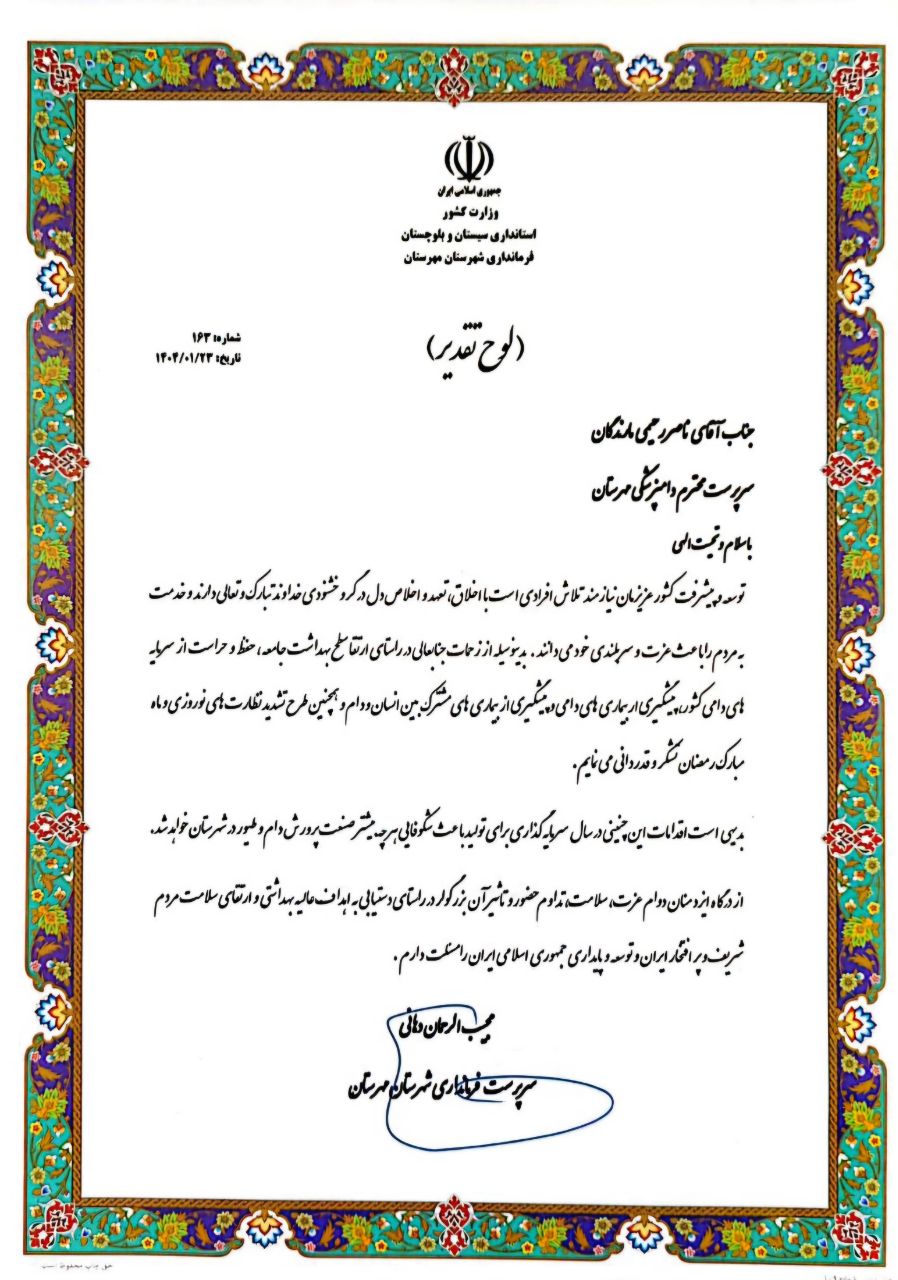 جمهوری اسلامی ایران
وزارت کشور
استانداری سیستان و بلوچستان
فرمانداری شهرستان مهرستان
شماره: ۱۶۳
تاریخ: ۱۴۰۴/۰۱/۲۳
(لوح تقدیر)
جناب آقای ناصر رحیمی مارندگان
سرپرست محترم دامپزشکی مهرستان
باسلام و تحیت الهی
توسعه و پیشرفت کشور عزیزمان نیازمند تلاش افرادی است با اخلاق، تعهد و اخلاص دل در گرو خشنودی خداوند تبارک و تعالی دارند و خدمت
به مردم را باعث عزت و سربلندی خود می دانند . بدینوسیله از زحمات جنابعالی در راستای ارتقا سطح بهداشت جامعه، حفظ و حراست از سرمایه
های دامی کشور، پیشگیری از بیماری های دامی و پیشگیری از بیماری های مشترک بین انسان و دام و همچنین طرح تشدید نظارت های نوروزی و ماه
مبارک رمضان تشکر و قدردانی می نمایم .
بدیهی است اقدامات این چنینی در سال سرمایه گذاری برای تولید باعث شکوفایی هرچه بیشتر صنعت پرورش دام و طیور در شهرستان خواهد شد.
از درگاه ایزد منان دوام عزت، سلامت، تداوم حضور و تاثیر آن بزرگوار در راستای دستیابی به اهداف عالیه بهداشتی و ارتقای سلامت مردم
شریف و پر افتخار ایران و توسعه و پایداری جمهوری اسلامی ایران را مسئلت دارم .
مجیب الرحمان دهانی
سرپرست فرمانداری شهرستان مهرستان
حق چاپ محفوظ است